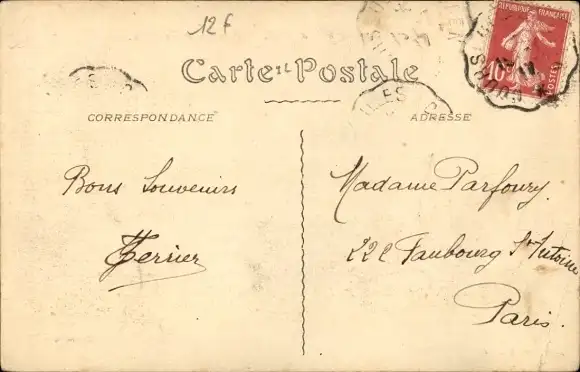 12 F
RÉPUBLIQUE FRANÇAISE
10
POSTES
Carte Postale
CORRESPONDANCE
ADRESSE
Bons Souvenirs
Terrier
Madame Parfoury.
222 Faubourg St Antoine
Paris.